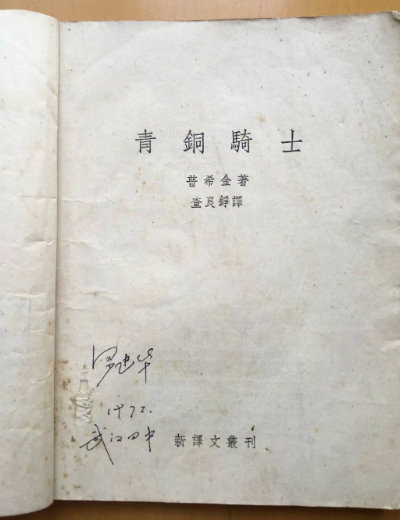 青銅騎士
普希金著
查良錚譯
1972.
武汉四中
新譯文叢刊